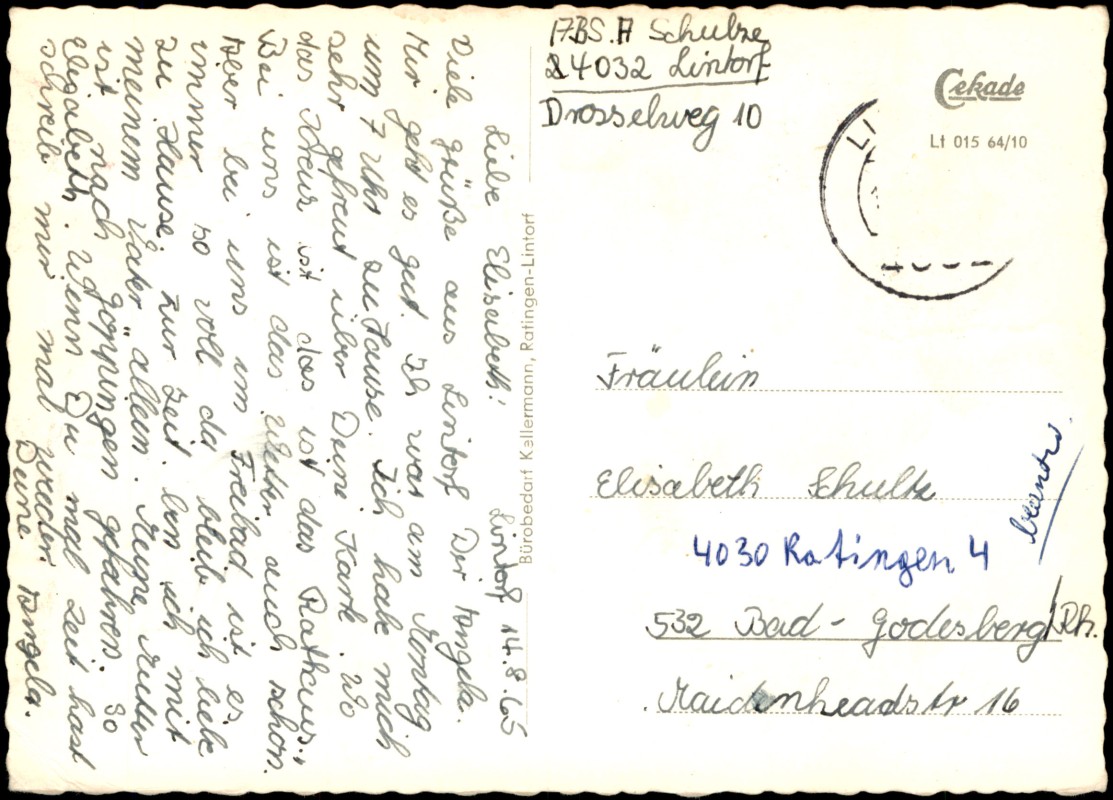 Lintorf 14.8.65
Liebe Elisabeth!
Viele grüße aus Lintorf Der Angela.
Mir geht es gut. Ich war am Montag
um 7 Uhr zu Hause. Ich habe mich
sehr gefreut über Deine Karte. Wo
das Kreuz ist das ist das Rathaus.
Bei uns ist das Wetter auch schon.
Aber bei uns im Freibad ist es
immer so voll da bleib ich liebe
zu Hause. Zur Zeit bin ich mit
meinem Vater allein. Meine Mutter
ist nach Göppingen gefahren. So
Elisabeth. Wenn Du mal Zeit hast
schreib mir mal wieder
Deine Angela.
Bürobedarf Kallermann, Ratingen-Lintorf
Schulze
4032 Lintorf
Drosselweg 10
Cekade
Lt 015 64/10
LI
Fräulein
Elisabeth Schulz
4030 Ratingen 4
532 Bad-Godesberg/Rh.
Maidenheadstr 16